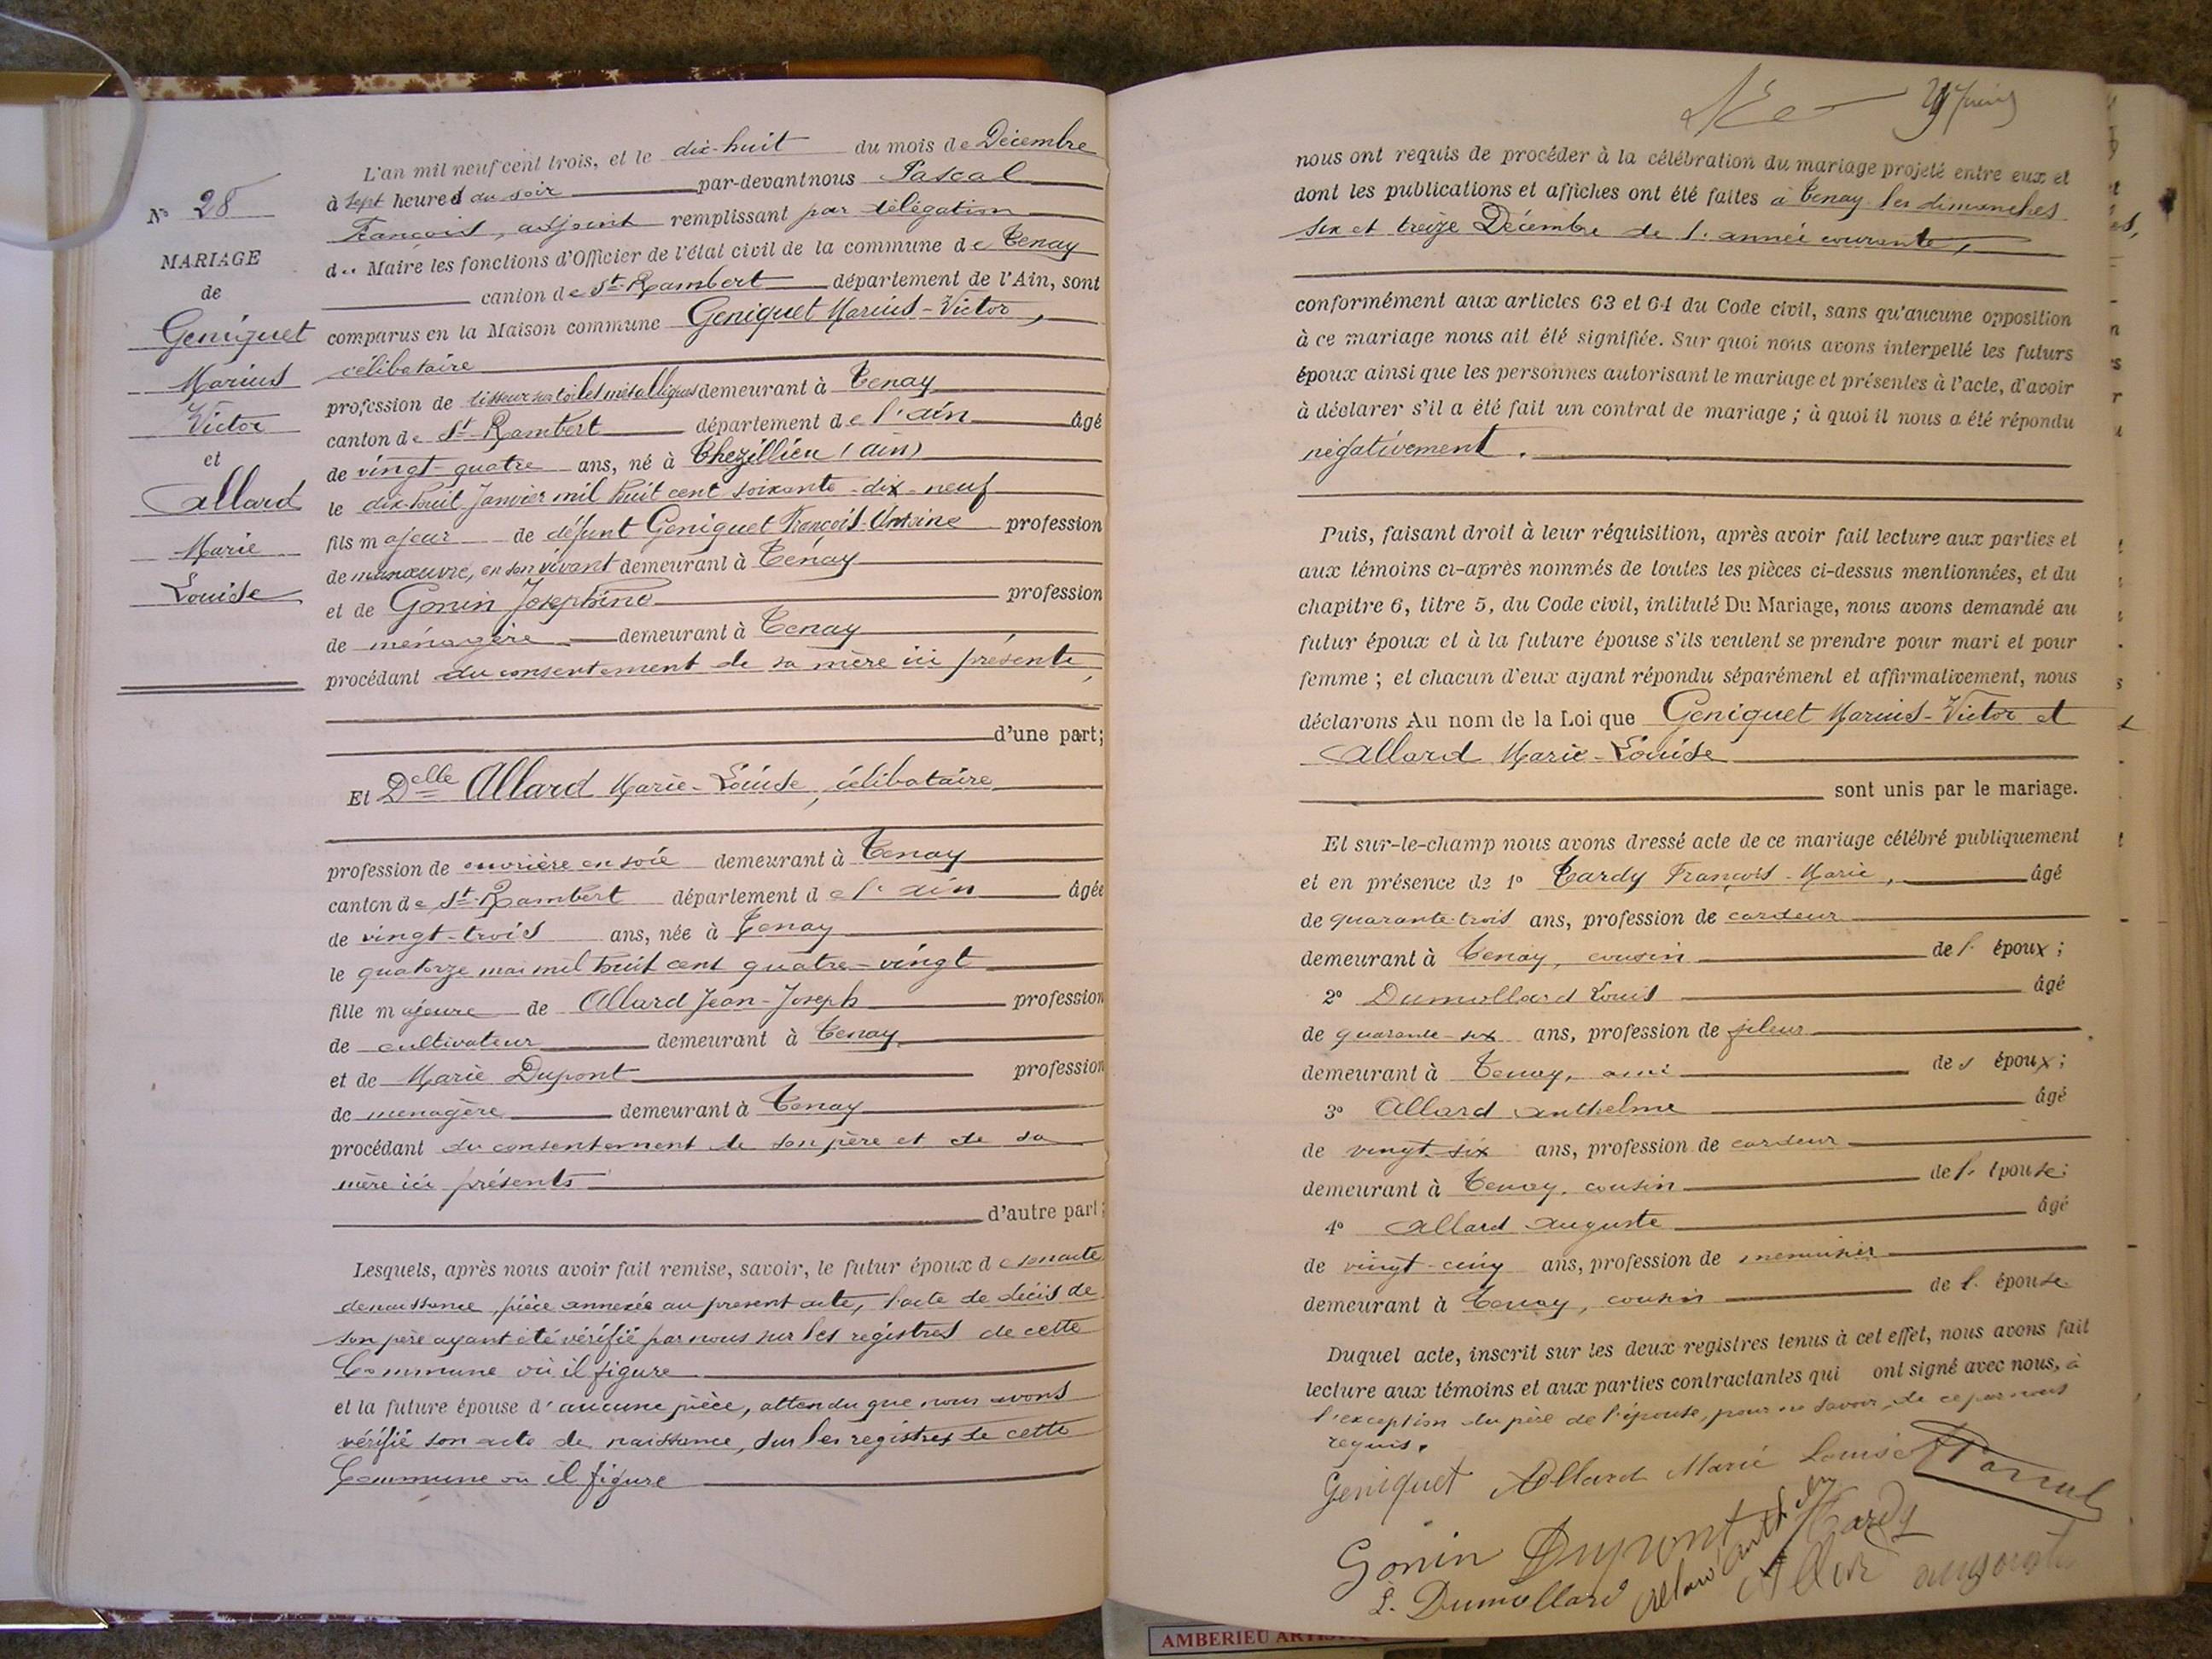 L'an mil neuf cent trois, et le dix-huit du mois de Décembre
à sept heures du soir par-devant nous Pascal
François, adjoint remplissant par délégation
du Maire les fonctions d'Officier de l'état civil de la commune de Tenay
canton de St-Rambert département de l'Ain, sont
comparus en la Maison commune Geniquet Marius-Victor,
célibataire
profession de tisseur sur toiles métalliques demeurant à Tenay
canton de St-Rambert département de l'ain âgé
de vingt-quatre ans, né à Thézillieu (ain)
le dix-huit Janvier mil huit cent soixante-dix-neuf
fils majeur de défunt Geniquet François-Antoine profession
de manœuvre, en son vivant demeurant à Tenay
et de Gonin Joséphine profession
de ménagère demeurant à Tenay
procédant du consentement de sa mère ici présente,
d'une part;
Et Delle Allard Marie-Louise, célibataire
profession de ouvrière en soie demeurant à Tenay
canton de St-Rambert département de l'ain âgée
de vingt-trois ans, née à Tenay
le quatorze mai mil huit cent quatre-vingt
fille majeure de Allard Jean-Joseph profession
de cultivateur demeurant à Tenay
et de Marie Dupont profession
de ménagère demeurant à Tenay
procédant du consentement de son père et de sa
mère ici présents
d'autre part;
Lesquels, après nous avoir fait remise, savoir, le futur époux de son acte
de naissance, pièce annexée au présent acte, l'acte de décès de
son père ayant été vérifié par nous sur les registres de cette
Commune où il figure
et la future épouse d'aucune pièce, attendu que nous avons
vérifié son acte de naissance, sur les registres de cette
Commune où il figure
N° 28
MARIAGE
de
Geniquet
Marius
Victor
et
Allard
Marie
Louise
nous ont requis de procéder à la célébration du mariage projeté entre eux et
dont les publications et affiches ont été faites à Tenay les dimanches
six et treize Décembre de l'année courante,
conformément aux articles 63 et 64 du Code civil, sans qu'aucune opposition
à ce mariage nous ait été signifiée. Sur quoi nous avons interpellé les futurs
époux ainsi que les personnes autorisant le mariage et présentes à l'acte, d'avoir
à déclarer s'il a été fait un contrat de mariage ; à quoi il nous a été répondu
négativement.
Puis, faisant droit à leur réquisition, après avoir fait lecture aux parties et
aux témoins ci-après nommés de toutes les pièces ci-dessus mentionnées, et du
chapitre 6, titre 5, du Code civil, intitulé Du Mariage, nous avons demandé au
futur époux et à la future épouse s'ils veulent se prendre pour mari et pour
femme ; et chacun d'eux ayant répondu séparément et affirmativement, nous
déclarons Au nom de la Loi que Geniquet Marius-Victor et
Allard Marie-Louise
sont unis par le mariage.
Et sur-le-champ nous avons dressé acte de ce mariage célébré publiquement
et en présence de 1° Tardy François-Marie, âgé
de quarante-trois ans, profession de cardeur
demeurant à Tenay, cousin de l'époux ;
2° Dumollard Louis âgé
de quarante-six ans, profession de fileur
demeurant à Tenay, ami des époux ;
3° Allard Anthelme âgé
de vingt-six ans, profession de cardeur
demeurant à Tenay, cousin de l'épouse ;
4° Allard Auguste âgé
de vingt-cinq ans, profession de menuisier
demeurant à Tenay, cousin de l'épouse
Duquel acte, inscrit sur les deux registres tenus à cet effet, nous avons fait
lecture aux témoins et aux parties contractantes qui ont signé avec nous, à
l'exception du père de l'épouse, pour ne savoir, de ce par nous
requis.
Geniquet Allard Marie Louise Pascal
Gonin Dupont Tardy
L. Dumollard Allard
AMBERIEU